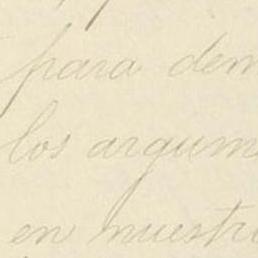 para dem
los argum
en nuestr